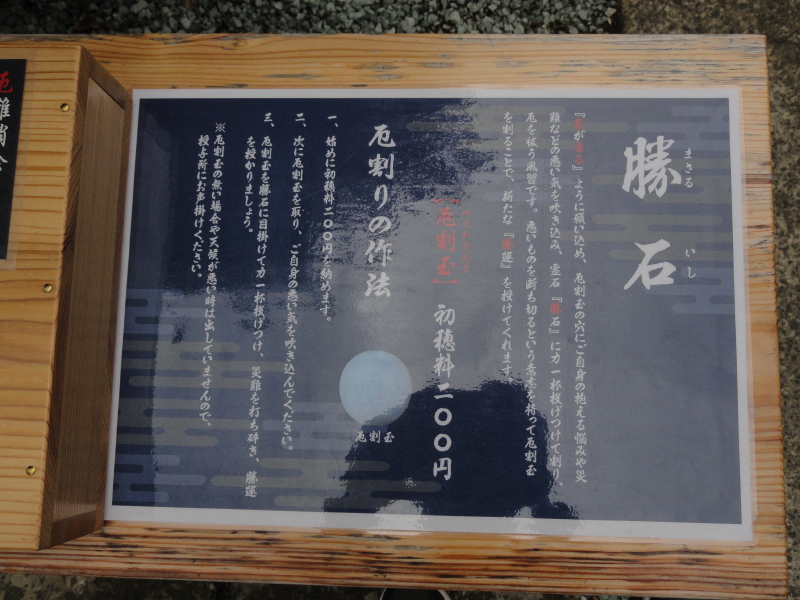 勝石
まさる
いし
ように願い込め、厄割玉の穴にご自身の抱える悩みや災
難などの悪い気を吹き込み、霊石『勝石』に力一杯投げつけて割り、
厄を祓う風習です。悪いものを断ち切るという意志を持って厄割玉
を割ることで、新たな『勝運』を授けてくれます。
『厄割玉』 初穂料二〇〇円
厄割玉
厄割りの作法
一、始めに初穂料二〇〇円を納めます。
二、次に厄割玉を取り、ご自身の悪い気を吹き込んでください。
三、厄割玉を勝石に目掛けて力一杯投げつけ、災難を打ち砕き、勝運
を授かりましょう。
※厄割玉の無い場合や天候が悪い時は出していませんので、
授与所にお声掛けください。